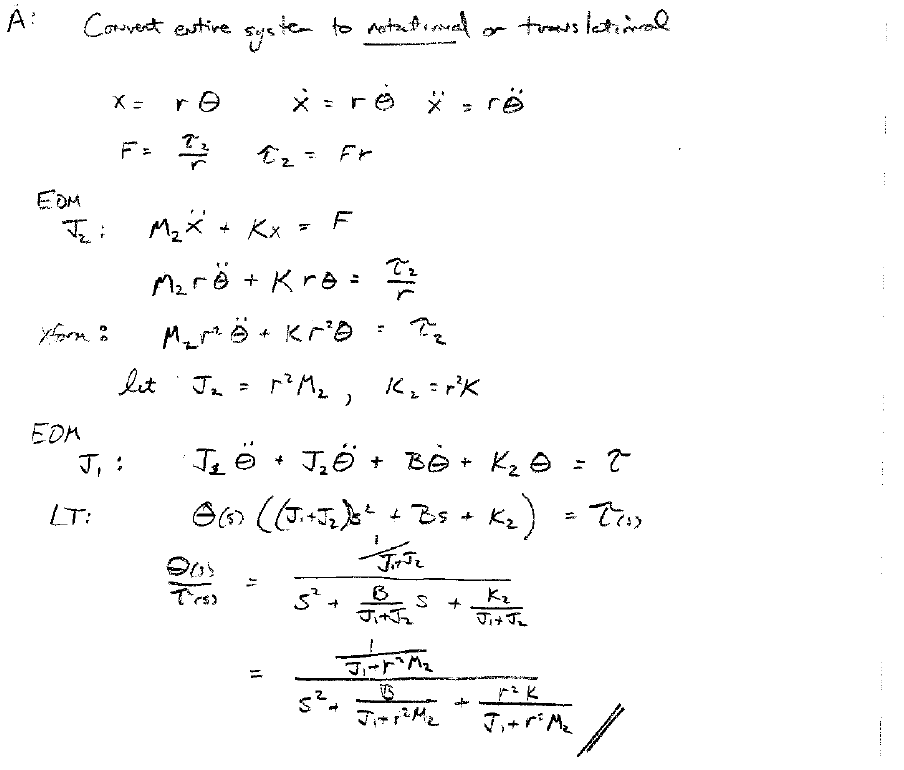 A: Convert entire system to rotational or translational
x = rθ ẋ = rθ̇ ẍ = rθ̈
F = τ₂/r τ₂ = Fr
EOM
J₂: M₂ẍ + Kx = F
M₂rθ̈ + Krθ = τ₂/r
xform: M₂r²θ̈ + Kr²θ = τ₂
let J₂ = r²M₂, K₂ = r²K
EOM
J₁: J₁θ̈ + J₂θ̈ + Bθ̇ + K₂θ = τ
LT: Θ(s)((J₁+J₂)s² + Bs + K₂) = τ(s)
Θ(s)/τ(s) = (1/(J₁+J₂)) / (s² + B/(J₁+J₂) s + K₂/(J₁+J₂))
= (1/(J₁+r²M₂)) / (s² + B/(J₁+r²M₂) + r²K/(J₁+r²M₂))